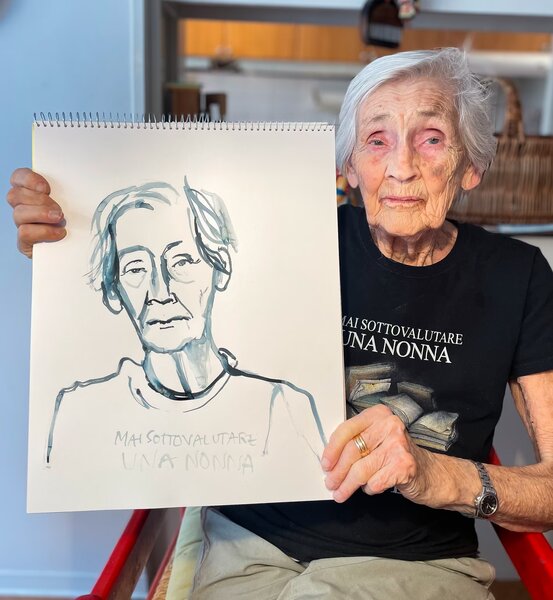 MAI SOTTOVALUTARE
UNA NONNA
MAI SOTTOVALUTARE
UNA NONNA